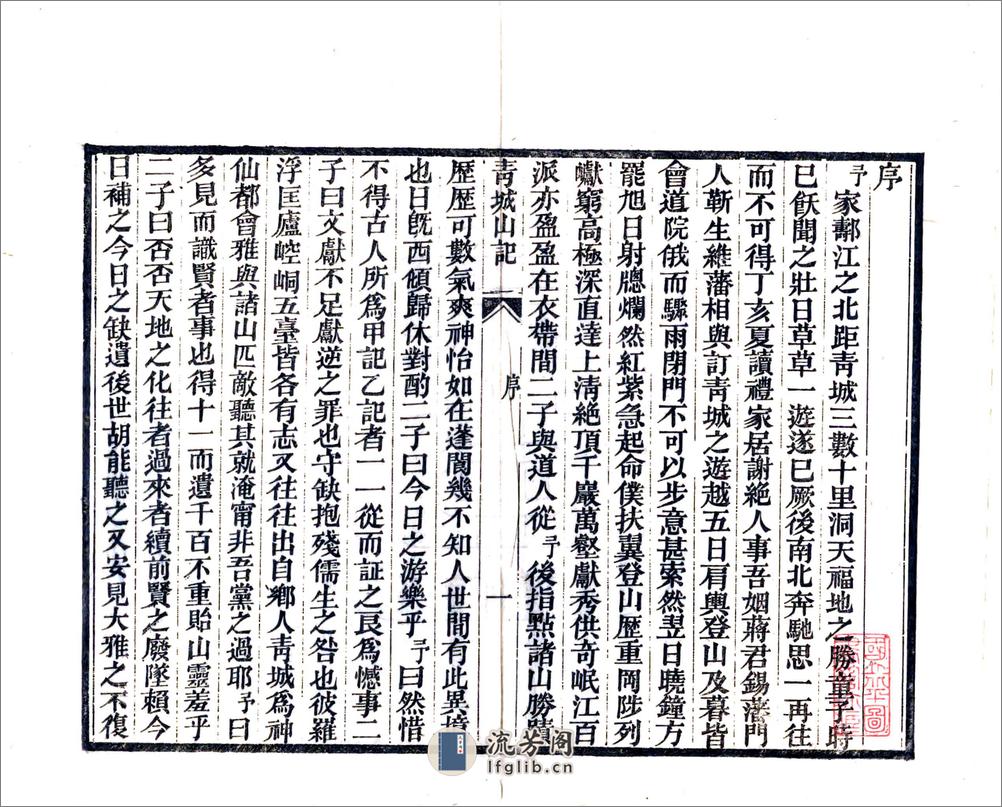 序
予家鄰江之北距靑城三數十里洞天福地之勝童子時
已飫聞之壯日草草一遊遂已厥後南北奔馳思一再往
而不可得丁亥夏讀禮家居謝絕人事吾姻蔣君錫藩門
人靳生維藩相與訂靑城之遊越五日肩輿登山及暮皆
會道院俄而驟雨閉門不可以步意甚索然翌日曉鐘方
罷旭日射牕爛然紅紫急起命僕扶翼登山歷重岡陟列
巘窮高極深直達上淸絕頂千巖萬壑獻秀供奇岷江百
派亦盈盈在衣帶間二子與道人從予後指點諸山勝蹟
靑城山記 序 一
歷歷可數氣爽神怡如在蓬閬幾不知人世間有此異境
也日旣西傾歸休對酌二子曰今日之游樂乎予曰然惜
不得古人所爲甲記乙記者一一從而証之良爲憾事二
子曰文獻不足獻逆之罪也守缺抱殘儒生之咎也彼羅
浮匡廬崆峒五臺皆各有志又往往出自鄉人靑城爲神
仙都會雅與諸山匹敵聽其就淹甯非吾黨之過耶予曰
多見而識賢者事也得十一而遺千百不重貽山靈羞乎
二子曰否否天地之化往者過來者續前賢之廢墜賴今
日補之今日之缺遺後世胡能聽之又安見大雅之不復
流芳阁
lfglib.cn